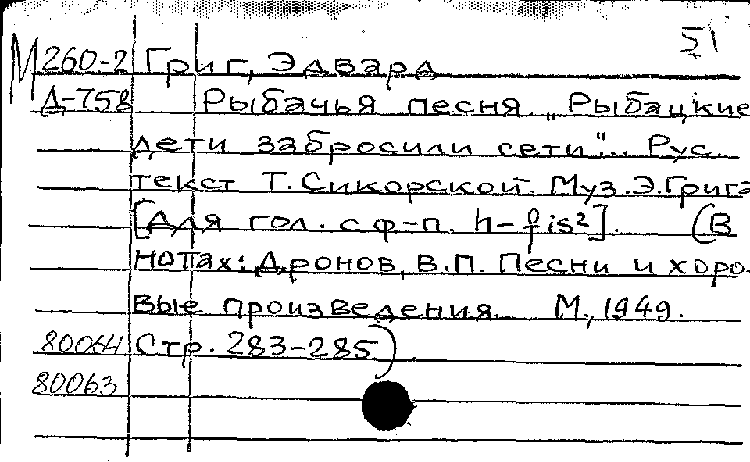 51
М 260-2 Григ, Эдвард
Д-758 Рыбачья песня „Рыбацкие
дети забросили сети". Рус.
текст Т. Сикорской. Муз. Э. Грига
[Для гол. с ф-п. h-fis²]. (В
нотах: Дронов, В.П. Песни и хоро-
вые произведения. М., 1949.
80064 Стр. 283-285)
80063